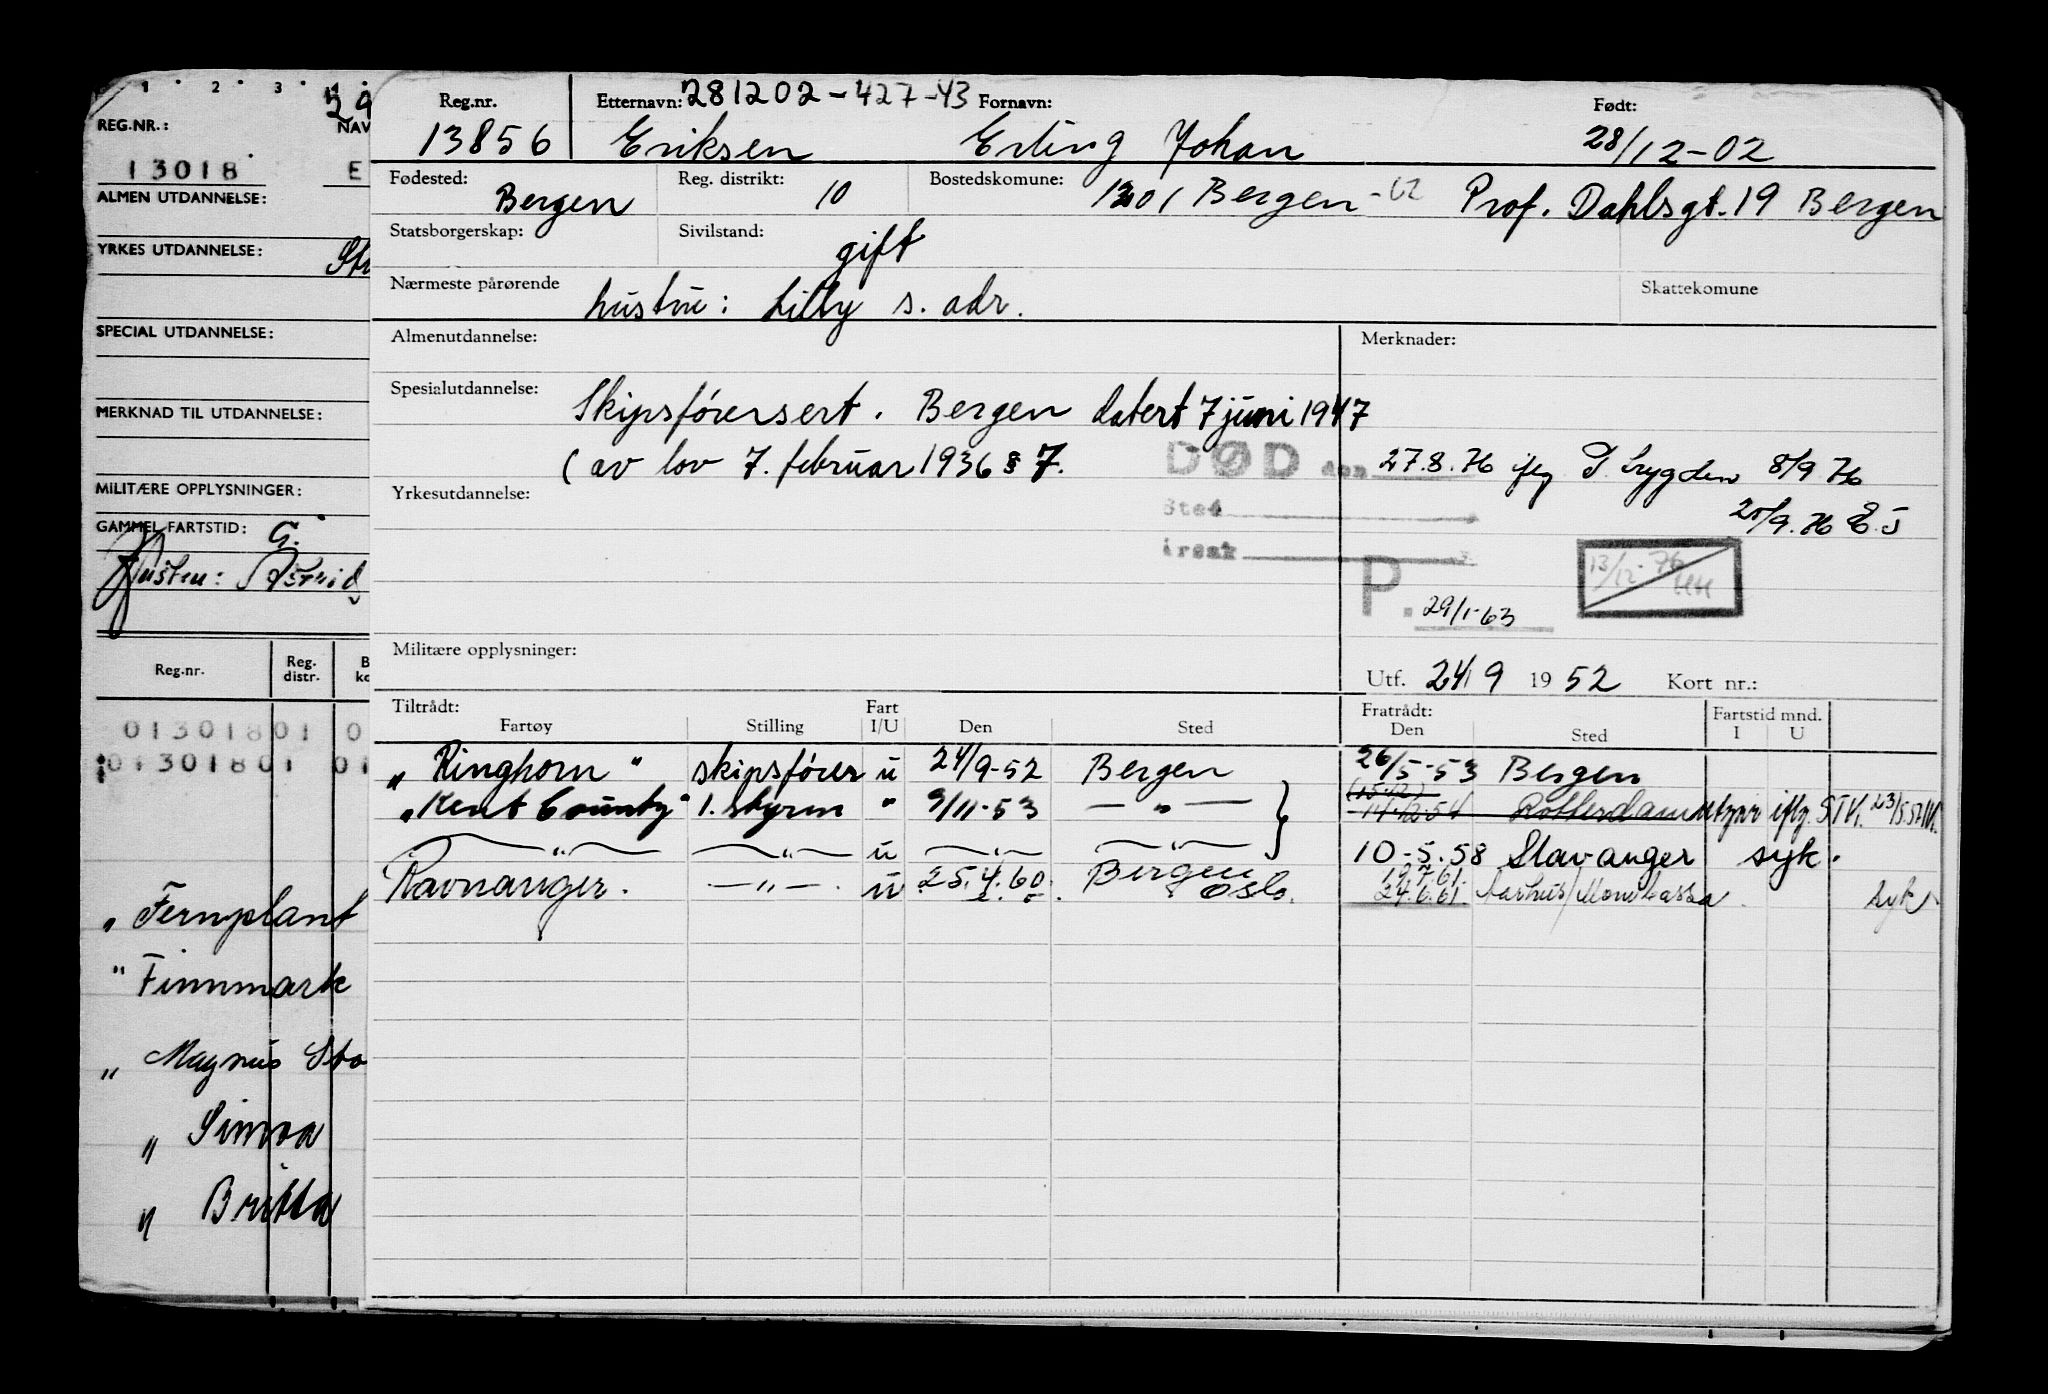 1 · 2 · 3 · 4
29
REG.NR.: NAV
13018 E
ALMEN UTDANNELSE:
YRKES UTDANNELSE:
SPECIAL UTDANNELSE:
MERKNAD TIL UTDANNELSE:
MILITÆRE OPPLYSNINGER:
GAMMEL FARTSTID: G.
Astrid
Reg.nr. Reg. distr. B ko
01301801 0
01301801 01
" Fernplant
" Finnmark
" Magnus Sto
" Simoa
" Britta
Reg.nr. Etternavn: 281202-427-43 Fornavn: Født:
13856 Eriksen Erling Johan 28/12-02
Fødested: Bergen Reg. distrikt: 10 Bostedskomune: 1301 Bergen-62 Prof. Dahlsgt. 19 Bergen
Statsborgerskap: Sivilstand: gift
Nærmeste pårørende hustru: Lilly s. adr. Skattekomune
Almenutdannelse: Merknader:
Spesialutdannelse: Skipsførersert. Bergen datert 7 juni 1947
(av lov 7. februar 1936 § 7. DØD den 27.8.76 8/9 76
Sted 20/9.76 E.J
Yrkesutdannelse: årsak
P. 29/1-63 13/12-76
Militære opplysninger: Utf. 24/9 1952 Kort nr.:
Tiltrådt: Fart Fratrådt: Fartstid mnd.
Fartøy Stilling I/U Den Sted Den Sted I U
"Ringhorn" skipsfører u 24/9-52 Bergen 26/5-53 Bergen
"Kent County" 1. styrm " 9/11-53 — " — 14-12-54 Rotterdam iflg. 23/5.57
— " — — " — u — " — — " — 10-5.58 Stavanger syk.
Ravnanger. — " — . u 25.4.60. Bergen Oslo. 19.7.61. 24.6.61. Aarhus/Mombassa syk